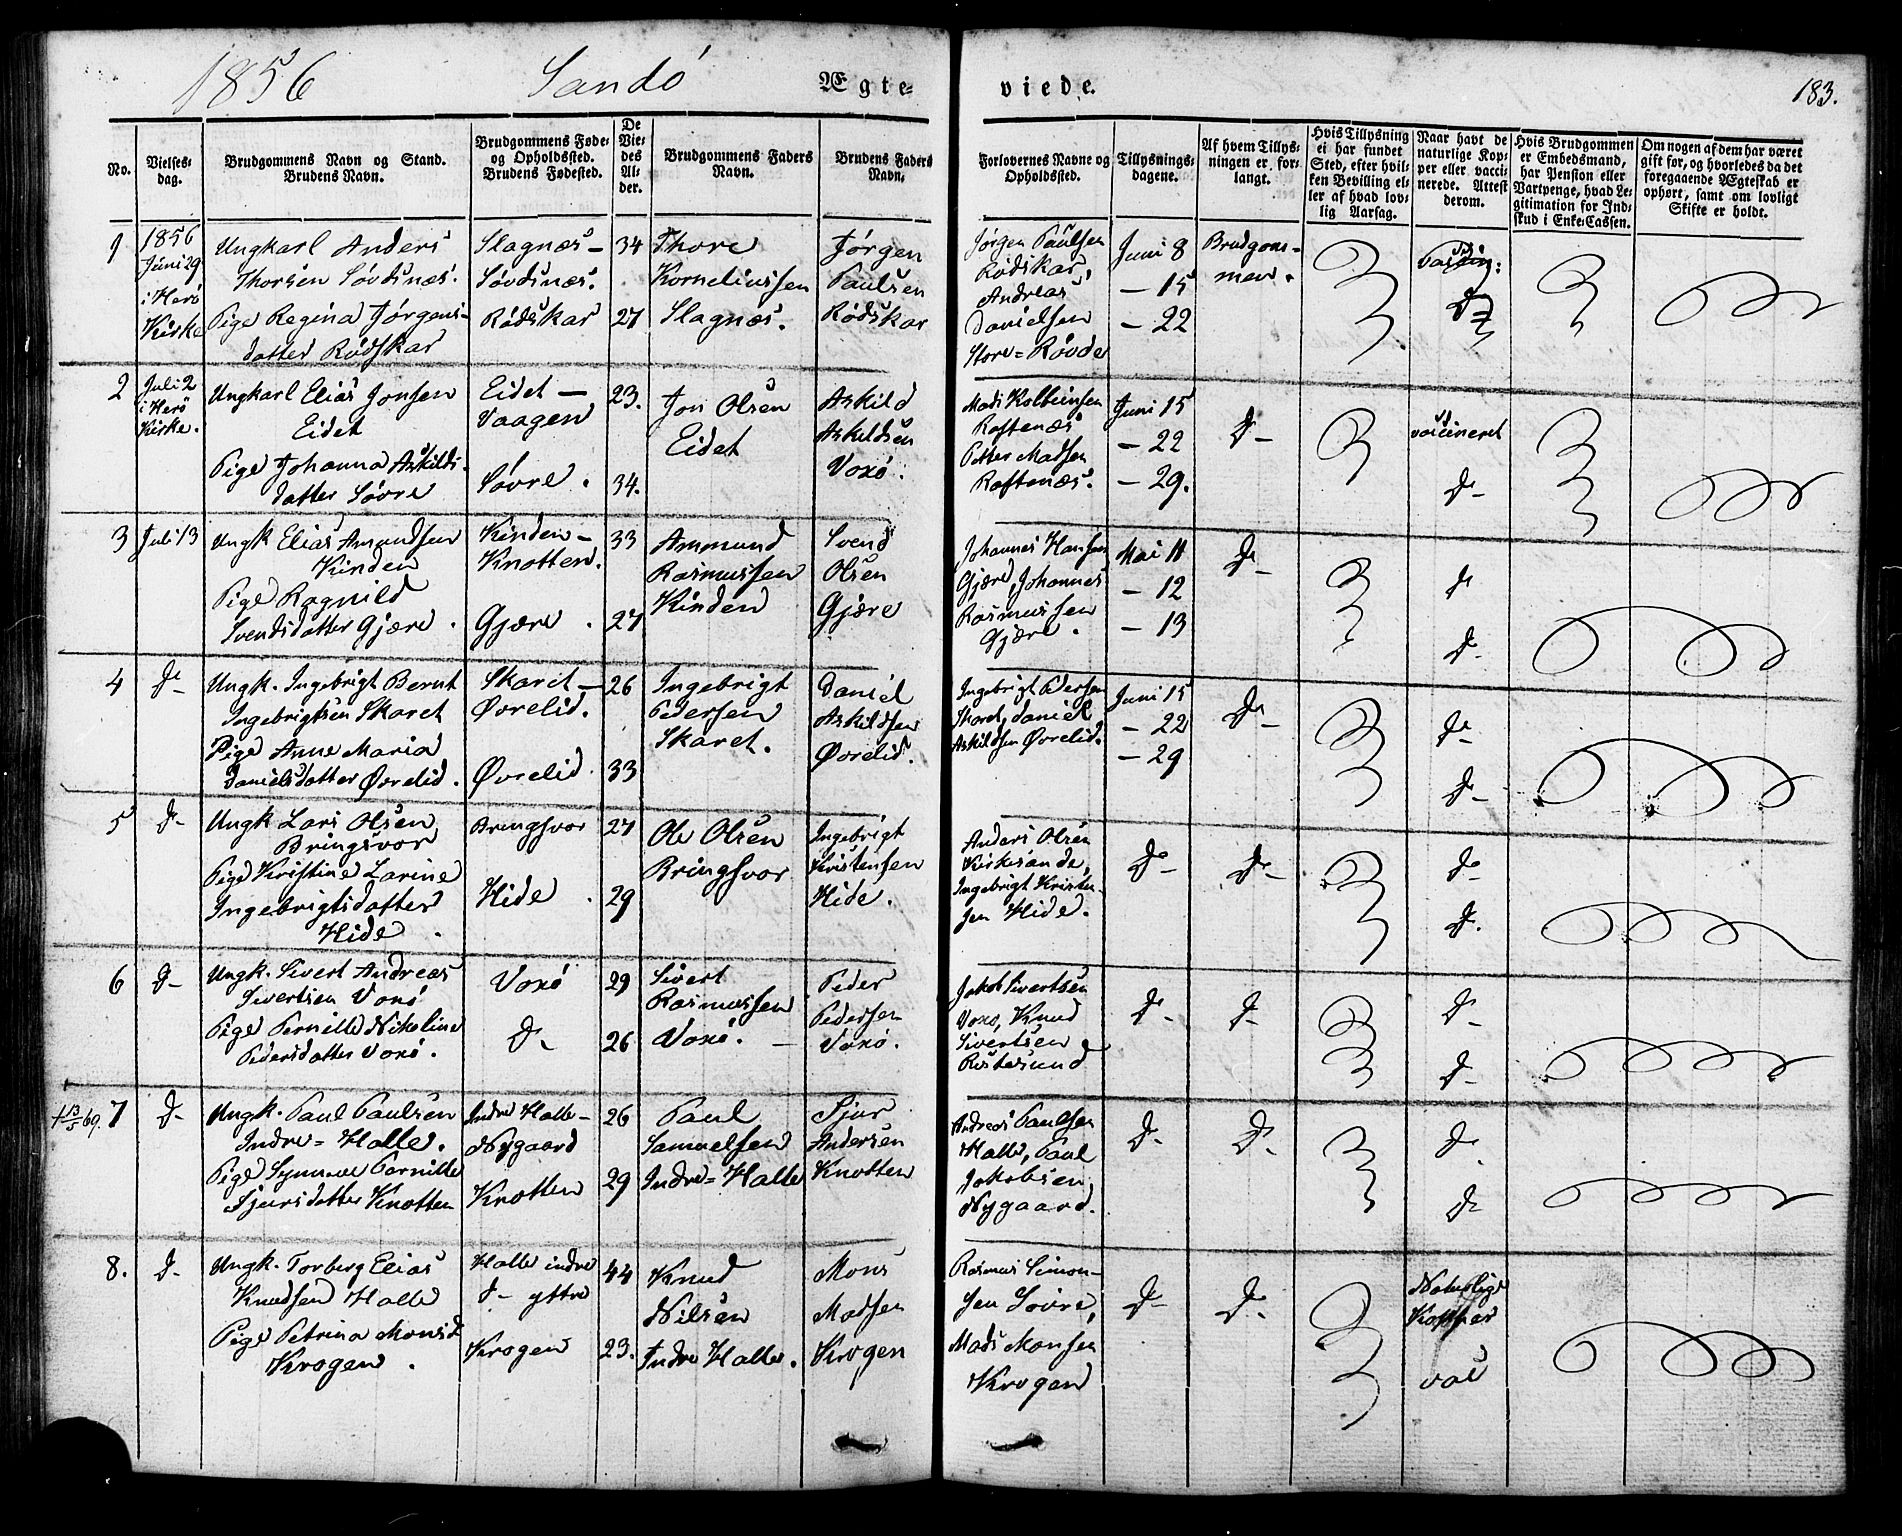 1856 Sandö Ægte-
viede. 183.
No.
Vielses-
dag.
Brudgommens Navn og Stand.
Brudens Navn.
Brudgommens Føde-
og Opholdssted.
Brudens Fødested.
De
Vie-
des
Al-
der.
Brudgommens Faders
Navn.
Brudens Faders
Navn.
Forlovernes Navne og
Opholdssted.
Tillysnings-
dagene.
Af hvem Tillys-
ningen er for-
langt.
Hvis Tillysning
ei har fundet
Sted, efter hvil-
ken Bevilling el-
ler af hvad lov-
lig Aarsag.
Naar havt de
naturlige Kop-
per eller vacci-
nerede. Attest
derom.
Hvis Brudgommen
er Embedsmand,
har Pension eller
Vartpenge, hvad Le-
gitimation for Ind-
skud i Enke-Cassen.
Om nogen af dem har været
gift før, og hvorledes da det
foregaaende Ægteskab er
ophørt, samt om lovligt
Skifte er holdt.
1
1856
Juni 29
i Herö
Kirke
Ungkarl Anders
Thorsen Sövdsnæs.
Pige Regina Jörgens-
datter Rödskar
Slagnæs-
Sövdsnæs.
Rödskar
34
27
Thore
Korneliussen
Slagnæs.
Jörgen
Paulsen
Rödskar
Jörgen Paulsen
Rödskar,
Andreas
Danielsen
Store=Rövde
Juni 8
- 15
- 22
Brudgom-
men.
D-
2
Juli 2
i Herö
Kirke.
Ungkarl Elias Jonsen
Eidet
Pige Johanna Askilds-
datter Sövre
Eidet -
Vaagen
Sövre.
23.
34.
Jon Olsen
Eidet
Askild
Askildsen
Voxö.
Mads Kolbeinsen
Roftenæs
Petter Madsen
Roftenæs.
Juni 15
- 22
- 29.
D-
vaccineret
D-
3
Juli 13
Ungk Elias Amundsen
Kinden
Pige Ragnild
Svendsdatter Gjære.
Kinden-
Knotten.
Gjære.
33
27
Ammund
Rasmussen
Kinden
Svend
Olsen
Gjære
Johannes Hansen
Gjære, Johannes
Rasmussen
Gjære.
Mai 11
- 12
- 13
D-
D-
D-
4
D-
Ungk. Ingebrigt Bernt
Ingebrigtsen Skaret
Pige Anne Maria
Danielsdatter Øvrelid.
Skaret-
Øvrelid.
Øvrelid.
26
33
Ingebrigt
Pedersen
Skaret.
Daniel
Askildsen
Øvrelid.
Ingebrigt Pedersen
Skaret, Daniel
Askildsen Øvrelid.
Juni 15
- 22
- 29
D-
D-
D-
5
D-
Ungk Lars Olsen
Bringsvor
Pige Kristine Larine
Ingebrigtsdatter
Hide.
Bringsvor
Hide.
27
29
Ole Olsen
Bringsvor
Ingebrigt
Kristensen
Hide.
Anders Olsen
Kirkesande,
Ingebrigt Kristen-
sen Hide.
D-
D-
D-
D-
6
D-
Ungk. Sivert Andreas
Sivertsen Voxö
Pige Pernille Nikoline
Pedersdatter Voxö.
Voxö
D-
29
26
Sivert
Rasmussen
Voxö. -
Peder
Pedersen
Voxö.
Jakob Sivertsen
Voxö, Knud
Sivertsen
Röstesund
D-
D-
D-
D-
† 13/5 69. 7
D-
Ungk. Paul Paulsen
Indre=Halle.
Pige Synnøve Pernille
Sjursdatter Knotten
Indre Halle-
Nygaard
Knotten
26
29
Paul
Samuelsen
Indre=Halle
Sjur
Andersen
Knotten
Andreas Paulsen
Halle, Paul
Jakobsen
Nygaard.
D-
D-
D-
D-
8.
D-
Ungk. Torberg Elias
Knudsen Halle
Pige Petrina Monsd
Krogen.
Halle indre
D- yttre
Krogen
44
23.
Knud
Nilsen
Indre Halle.
Mons
Madsen
Krogen
Rasmus Simon-
sen Sövre,
Mads Monsen
Krogen
D-
D-
Naturlige
Kopper
vac